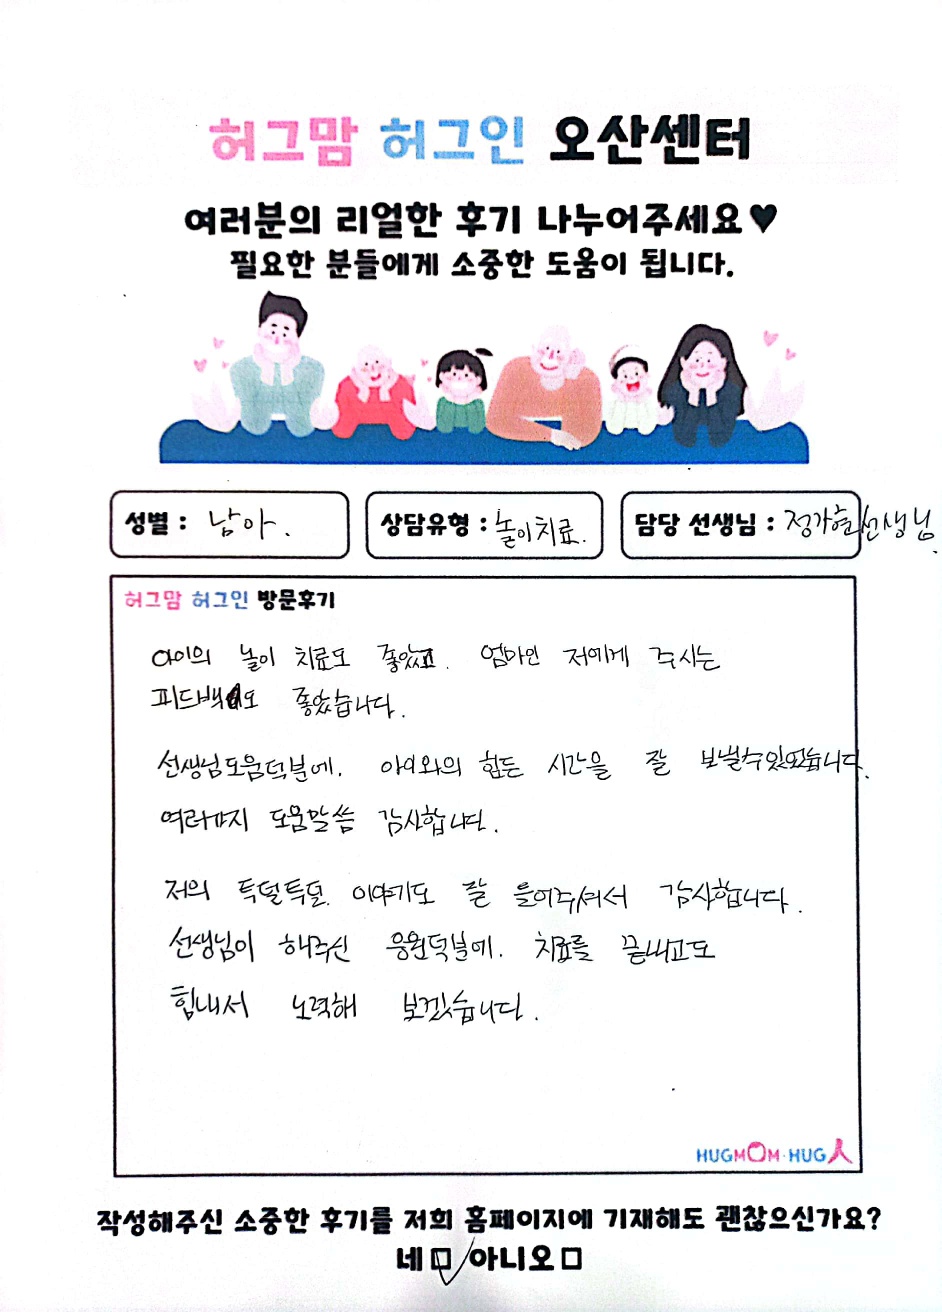 허그맘 허그인 오산센터
여러분의 리얼한 후기 나누어주세요♥
필요한 분들에게 소중한 도움이 됩니다.
성별 : 남아.
상담유형 : 놀이치료.
담당 선생님 : 정가현선생님.
허그맘 허그인 방문후기
아이의 놀이 치료도 좋았고. 엄마인 저에게 주시는
피드백도 좋았습니다.
선생님도움덕분에. 아이와의 힘든 시간을 잘 보낼수있었습니다.
여러가지 도움말씀 감사합니다.
저의 특덜특덜 이야기도 잘 들어주셔서 감사합니다.
선생님이 해주신 응원덕분에. 치료를 끝내고도
힘내서 노력해 보겠습니다.
HUGMOM·HUG人
작성해주신 소중한 후기를 저희 홈페이지에 기재해도 괜찮으신가요?
네☑ 아니오□